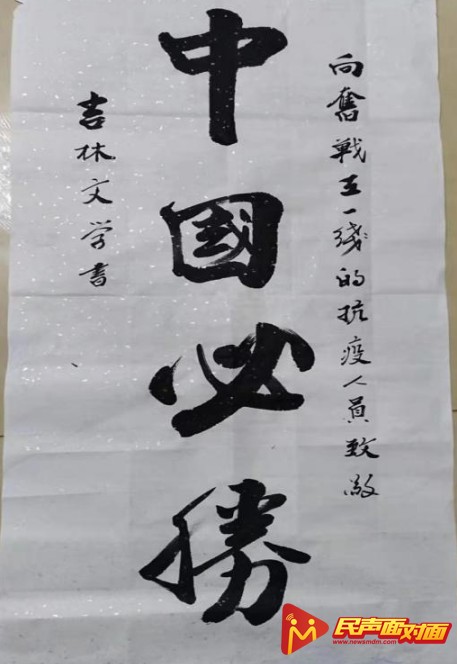 向奮戰在一线的抗疫人員致敬
中國必勝
吉林文学書
民声面对面
www.newsmdm.com